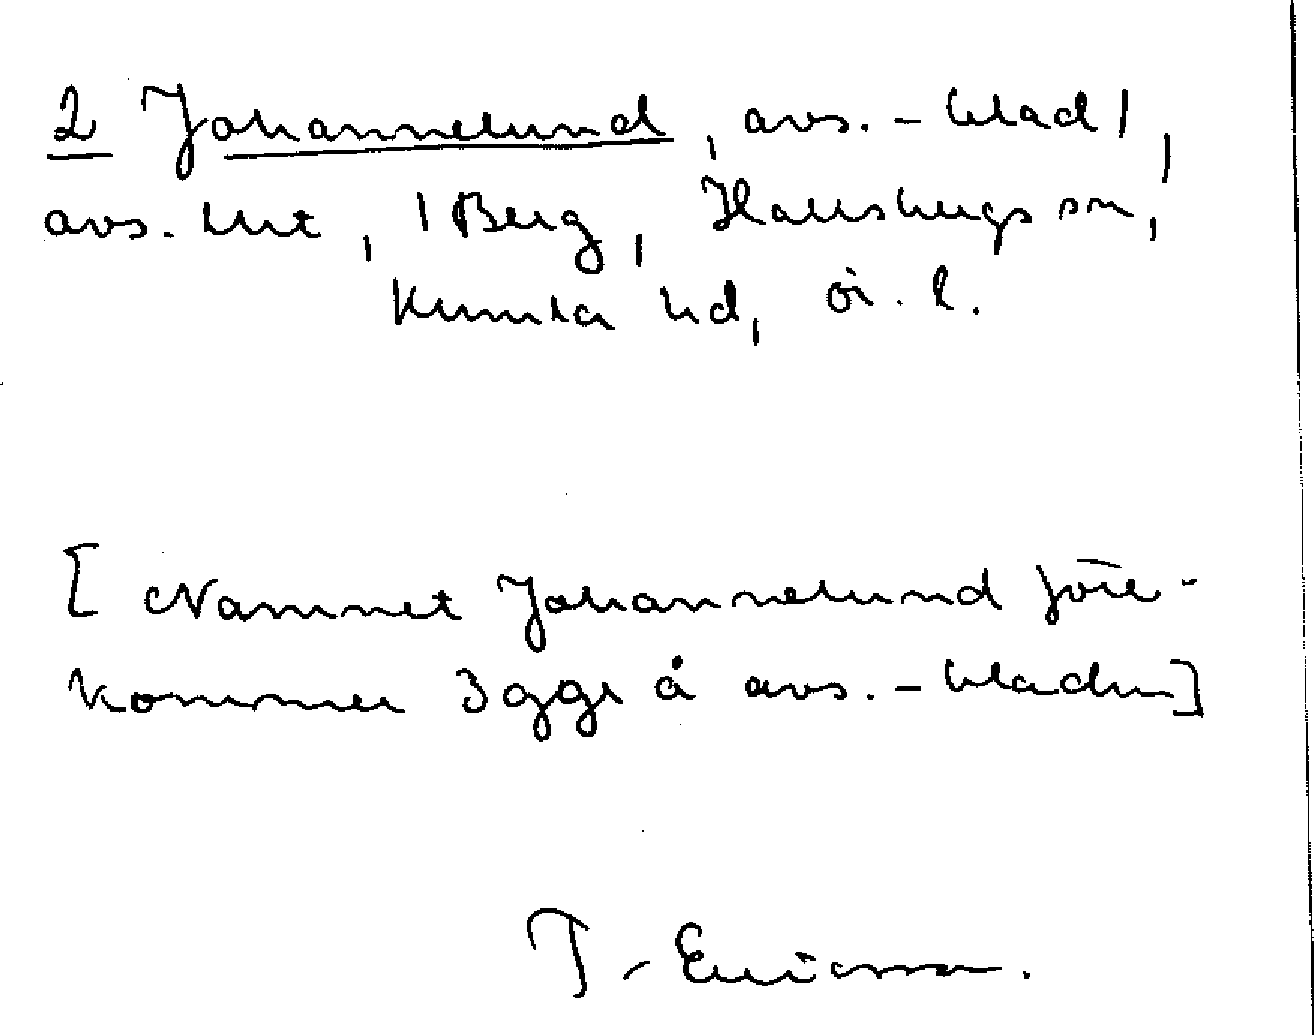 2 Johannelund, avs.-blad 1,
avs. litt, 1 Berg, Hallsbergs sn,
Kumla hd, Ör. l.
[Namnet Johannelund före-
kommer 3 ggr å avs.-bladen]
T. Ericsson.